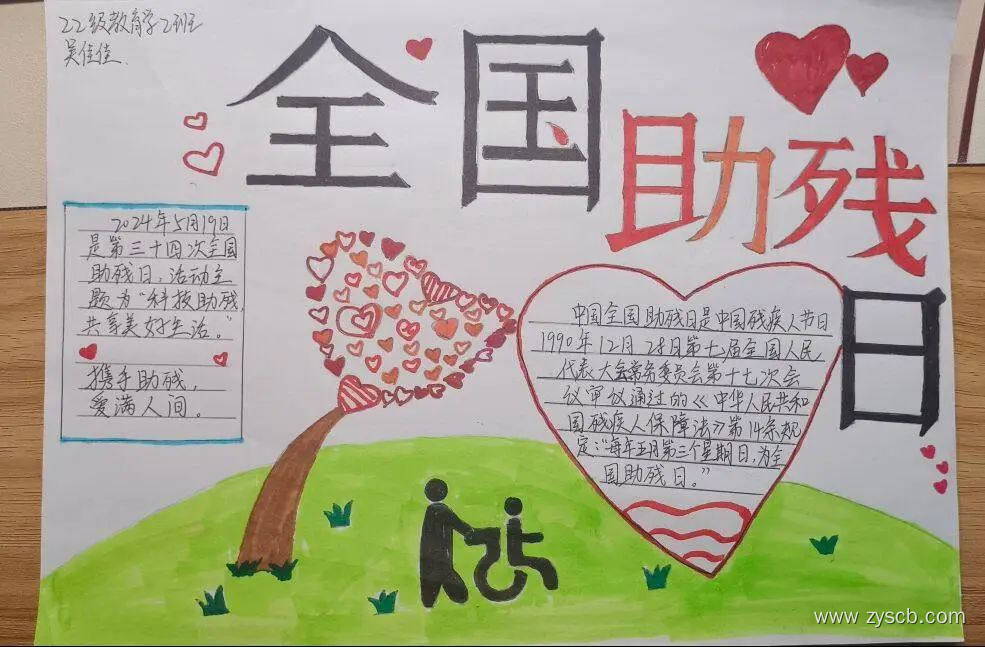 22级教育学2班
吴佳佳
全国助残日
2024年5月19日
是第三十四次全国
助残日，活动主
题为“科技助残，
共享美好生活。”
携手助残，
爱满人间。
中国全国助残日是中国残疾人节日
1990年12月28日第七届全国人民
代表大会常务委员会第十七次会
议审议通过的《中华人民共和
国残疾人保障法》第14条规
定：“每年五月第三个星期日，为全
国助残日。”
www.zyscb.com